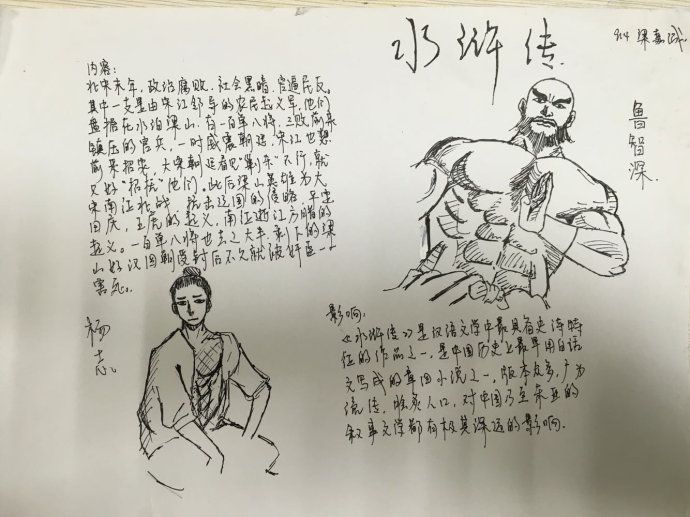 水浒传
914 梁嘉诚
鲁智深
内容：
北宋末年，政治腐败，社会黑暗，官逼民反。
其中一支是由宋江领导的农民起义军，他们
盘据在水泊梁山，有一百单八将，三败前来
镇压的官兵，一时威震朝廷，宋江也想
前来招安，大宋朝廷看见“剿杀”不行，就
又好“招抚”他们。此后梁山英雄为大
宋南征北战，抗击辽国的侵略，平定
田庆，王虎的起义，南征浙江方腊的
起义。一百单八将也去之大半，剩下的梁
山好汉回朝受封后不久就被奸臣一一
害死。
杨志
影响：
《水浒传》是汉语文学中最具有史诗特
征的作品之一，是中国历史上最早用白话
文写成的章回小说之一，版本众多，广为
流传，脍炙人口，对中国乃至东亚的
叙事文学都有极其深远的影响.